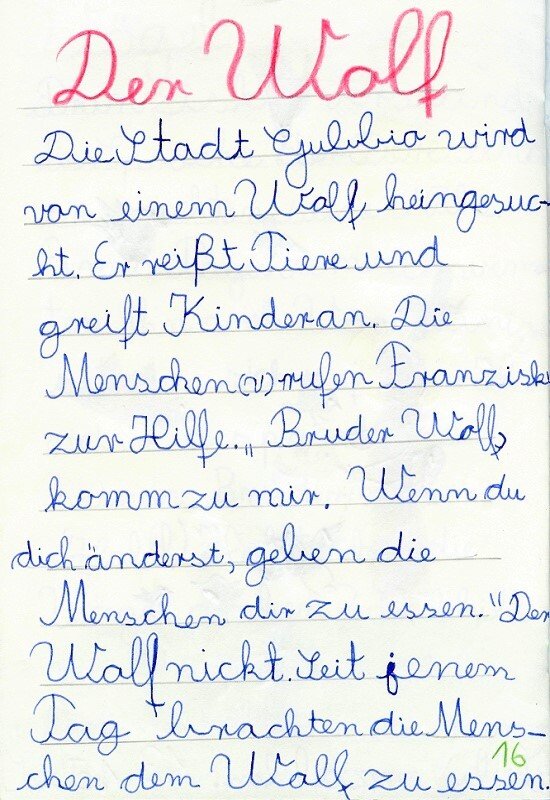 Der Wolf
Die Stadt Gubbio wird
von einem Wolf heingesuc-
ht. Er reißt Tiere und
greift Kinder an. Die
Menschen (v) rufen Franzisk
zur Hilfe. „Bruder Wolf,
komm zu mir. Wenn du
dich änderst, geben die
Menschen dir zu essen." Der
Wolf nickt. Seit jenem
Tag brachten die Mens-
chen dem Wolf zu essen.
16